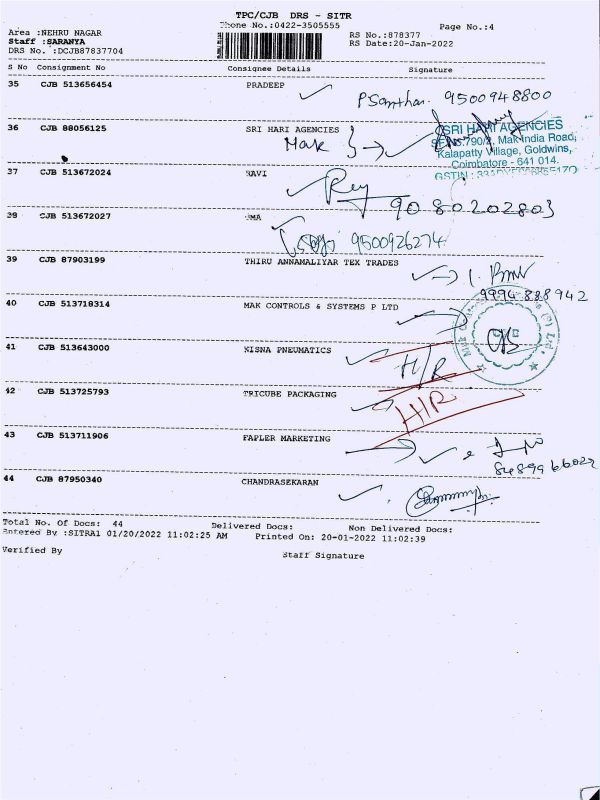 TPC/CJB DRS - SITR
Phone No.:0422-3505555
Page No.:4
Area :NEHRU NAGAR
Staff :SARANYA
DRS No. :DCJB87837704
RS No.:878377
RS Date:20-Jan-2022
S No Consignment No Consignee Details Signature
35 CJB 513656454 PRADEEP
9500948800
36 CJB 88056125 SRI HARI AGENCIES
Mak
SRI HARI AGENCIES
SF No.790/2, Mak India Road,
Kalapatty Village, Goldwins,
Coimbatore - 641 014.
GSTIN :
37 CJB 513672024 RAVI
9080202803
38 CJB 513672027 UMA
9500926274
39 CJB 87903199 THIRU ANNAMALIYAR TEX TRADES
9994888942
40 CJB 513718314 MAK CONTROLS & SYSTEMS P LTD
41 CJB 513643000 KISNA PNEUMATICS
H/R
42 CJB 513725793 TRICUBE PACKAGING
H/R
43 CJB 513711906 FAPLER MARKETING
44 CJB 87950340 CHANDRASEKARAN
Total No. Of Docs: 44 Delivered Docs: Non Delivered Docs:
Entered By :SITRA1 01/20/2022 11:02:25 AM Printed On: 20-01-2022 11:02:39
Verified By Staff Signature